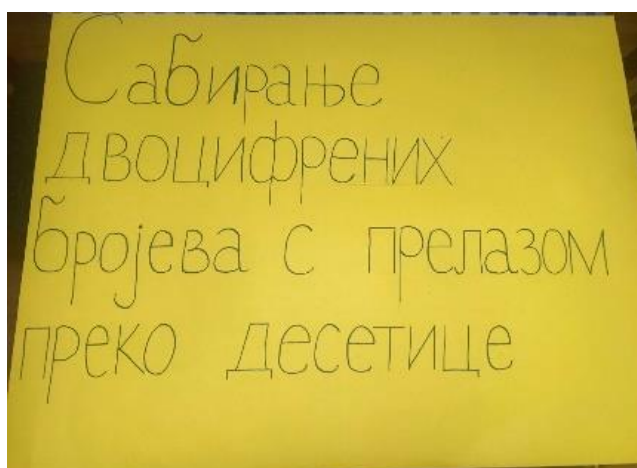 Сабирање
двоцифрених
бројева с прелазом
преко десетице